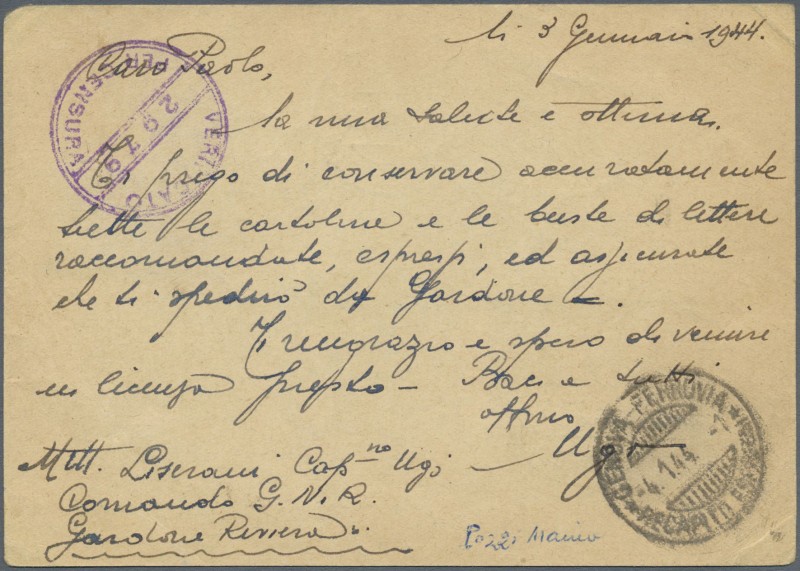 li 3 Gennaio 1944.
Caro Paolo,
la mia salute è ottima.
Ti prego di conservare accuratamente
tutte le cartoline e le buste di lettere
raccomandate, espressi, ed assicurate
che ti spedirò da Gardone –.
Ti ringrazio e spero di venire
in licenza presto – Baci a tutti
Ugo
Mitt. Liserani Cap.no Ugo
Comando G.N.R.
Gardone Riviera
VERIFICATO PER CENSURA
GENOVA-FERROVIA
4.1.44
RECAPITO